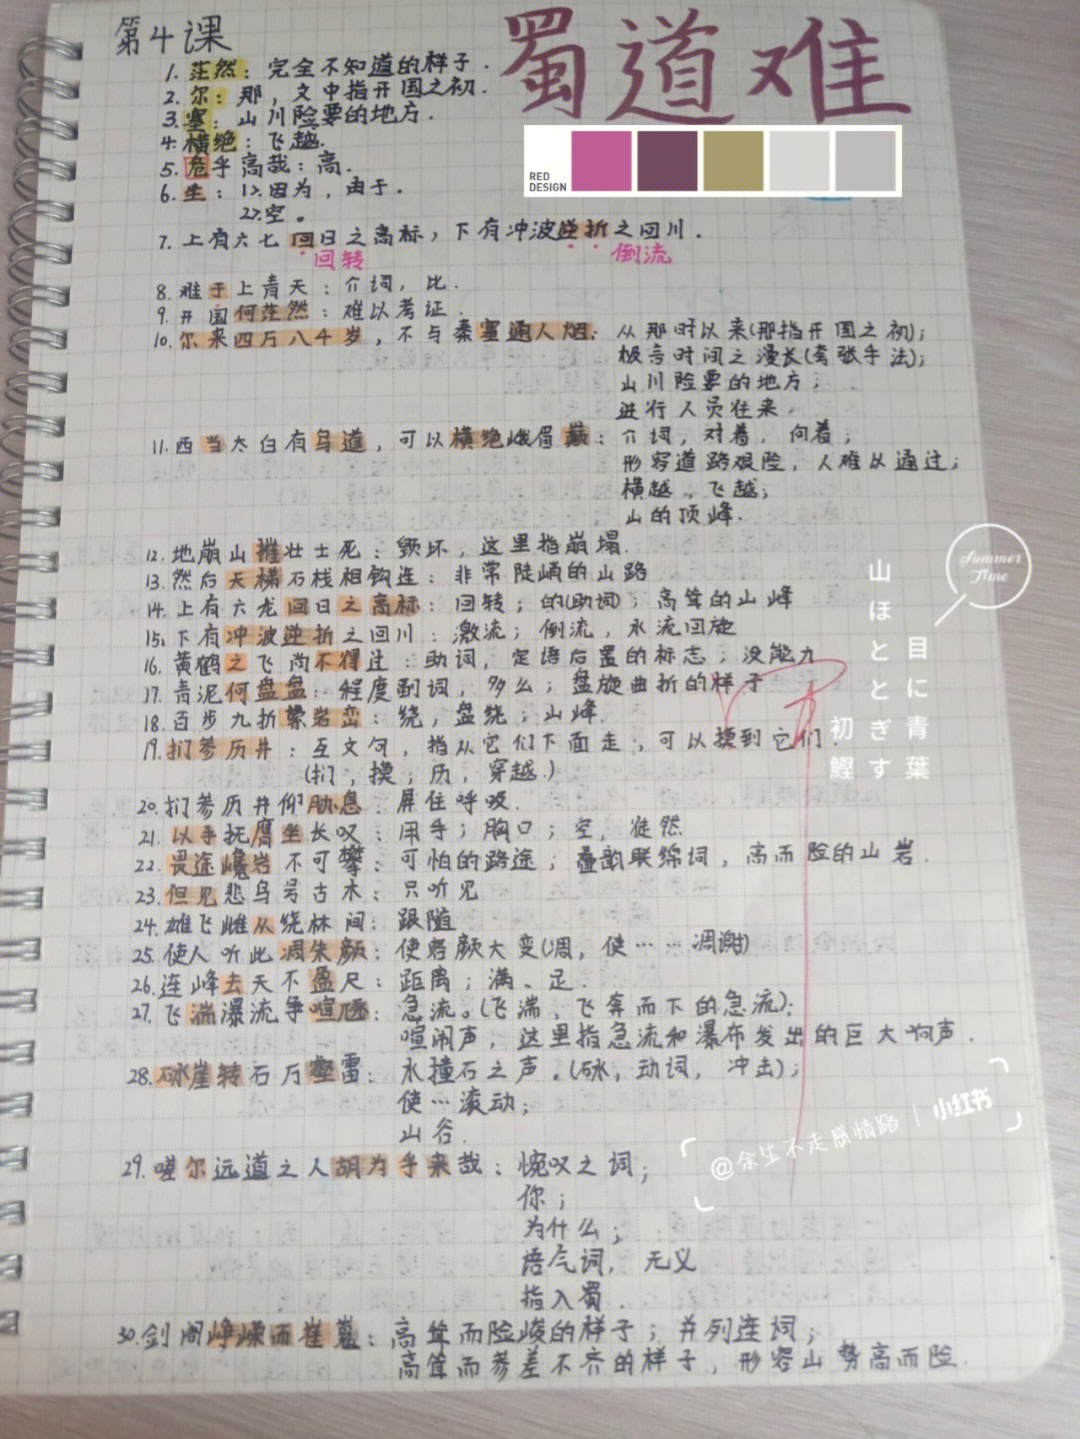 第4课
蜀道难
1. 茫然：完全不知道的样子.
2. 尔：那，文中指开国之初.
3. 塞：山川险要的地方.
4. 横绝：飞越.
5. 危乎高哉：高.
6. 坐：1>.因为，由于.
2>.空。
RED
DESIGN
7. 上有六七回日之高标，下有冲波逆折之回川.
回转 倒流
8. 难于上青天：介词，比.
9. 开国何茫然：难以考证.
10. 尔来四万八千岁，不与秦塞通人烟：从那时以来(那指开国之初)；
极言时间之漫长(夸张手法)；
山川险要的地方；
进行人员往来.
11. 西当太白有鸟道，可以横绝峨眉巅：介词，对着，向着；
形容道路艰险，人难以通过；
横越，飞越；
山的顶峰.
12. 地崩山摧壮士死：毁坏，这里指崩塌.
13. 然后天梯石栈相钩连：非常陡峭的山路
14. 上有六龙回日之高标：回转；的(助词)；高耸的山峰
15. 下有冲波逆折之回川：激流；倒流，水流回旋
16. 黄鹤之飞尚不得过：助词，定语后置的标志；没能力
17. 青泥何盘盘：程度副词，多么；盘旋曲折的样子
18. 百步九折萦岩峦：绕，盘绕；山峰.
19. 扪参历井：互文句，指从它们下面走，可以摸到它们.
(扪，摸；历，穿越.)
20. 扪参历井仰胁息：屏住呼吸.
21. 以手抚膺坐长叹：用手；胸口；空，徒然
22. 畏途巉岩不可攀：可怕的路途；叠韵联绵词，高而险的山岩.
23. 但见悲鸟号古木：只听见
24. 雄飞雌从绕林间：跟随
25. 使人听此凋朱颜：使容颜大变(凋，使……凋谢)
26. 连峰去天不盈尺：距离；满、足.
27. 飞湍瀑流争喧豗：急流。(飞湍，飞奔而下的急流)；
喧闹声，这里指急流和瀑布发出的巨大响声.
28. 砯崖转石万壑雷：水撞石之声。(砯，动词，冲击)；
使…滚动；
山谷.
29. 嗟尔远道之人胡为乎来哉：惋叹之词；
你；
为什么；
语气词，无义
指入蜀.
30. 剑阁峥嵘而崔嵬：高耸而险峻的样子；并列连词；
高耸而参差不齐的样子，形容山势高而险.
Summer
Time
目に青葉
山ほととぎす
初鰹
@余生不走感情路 | 小红书